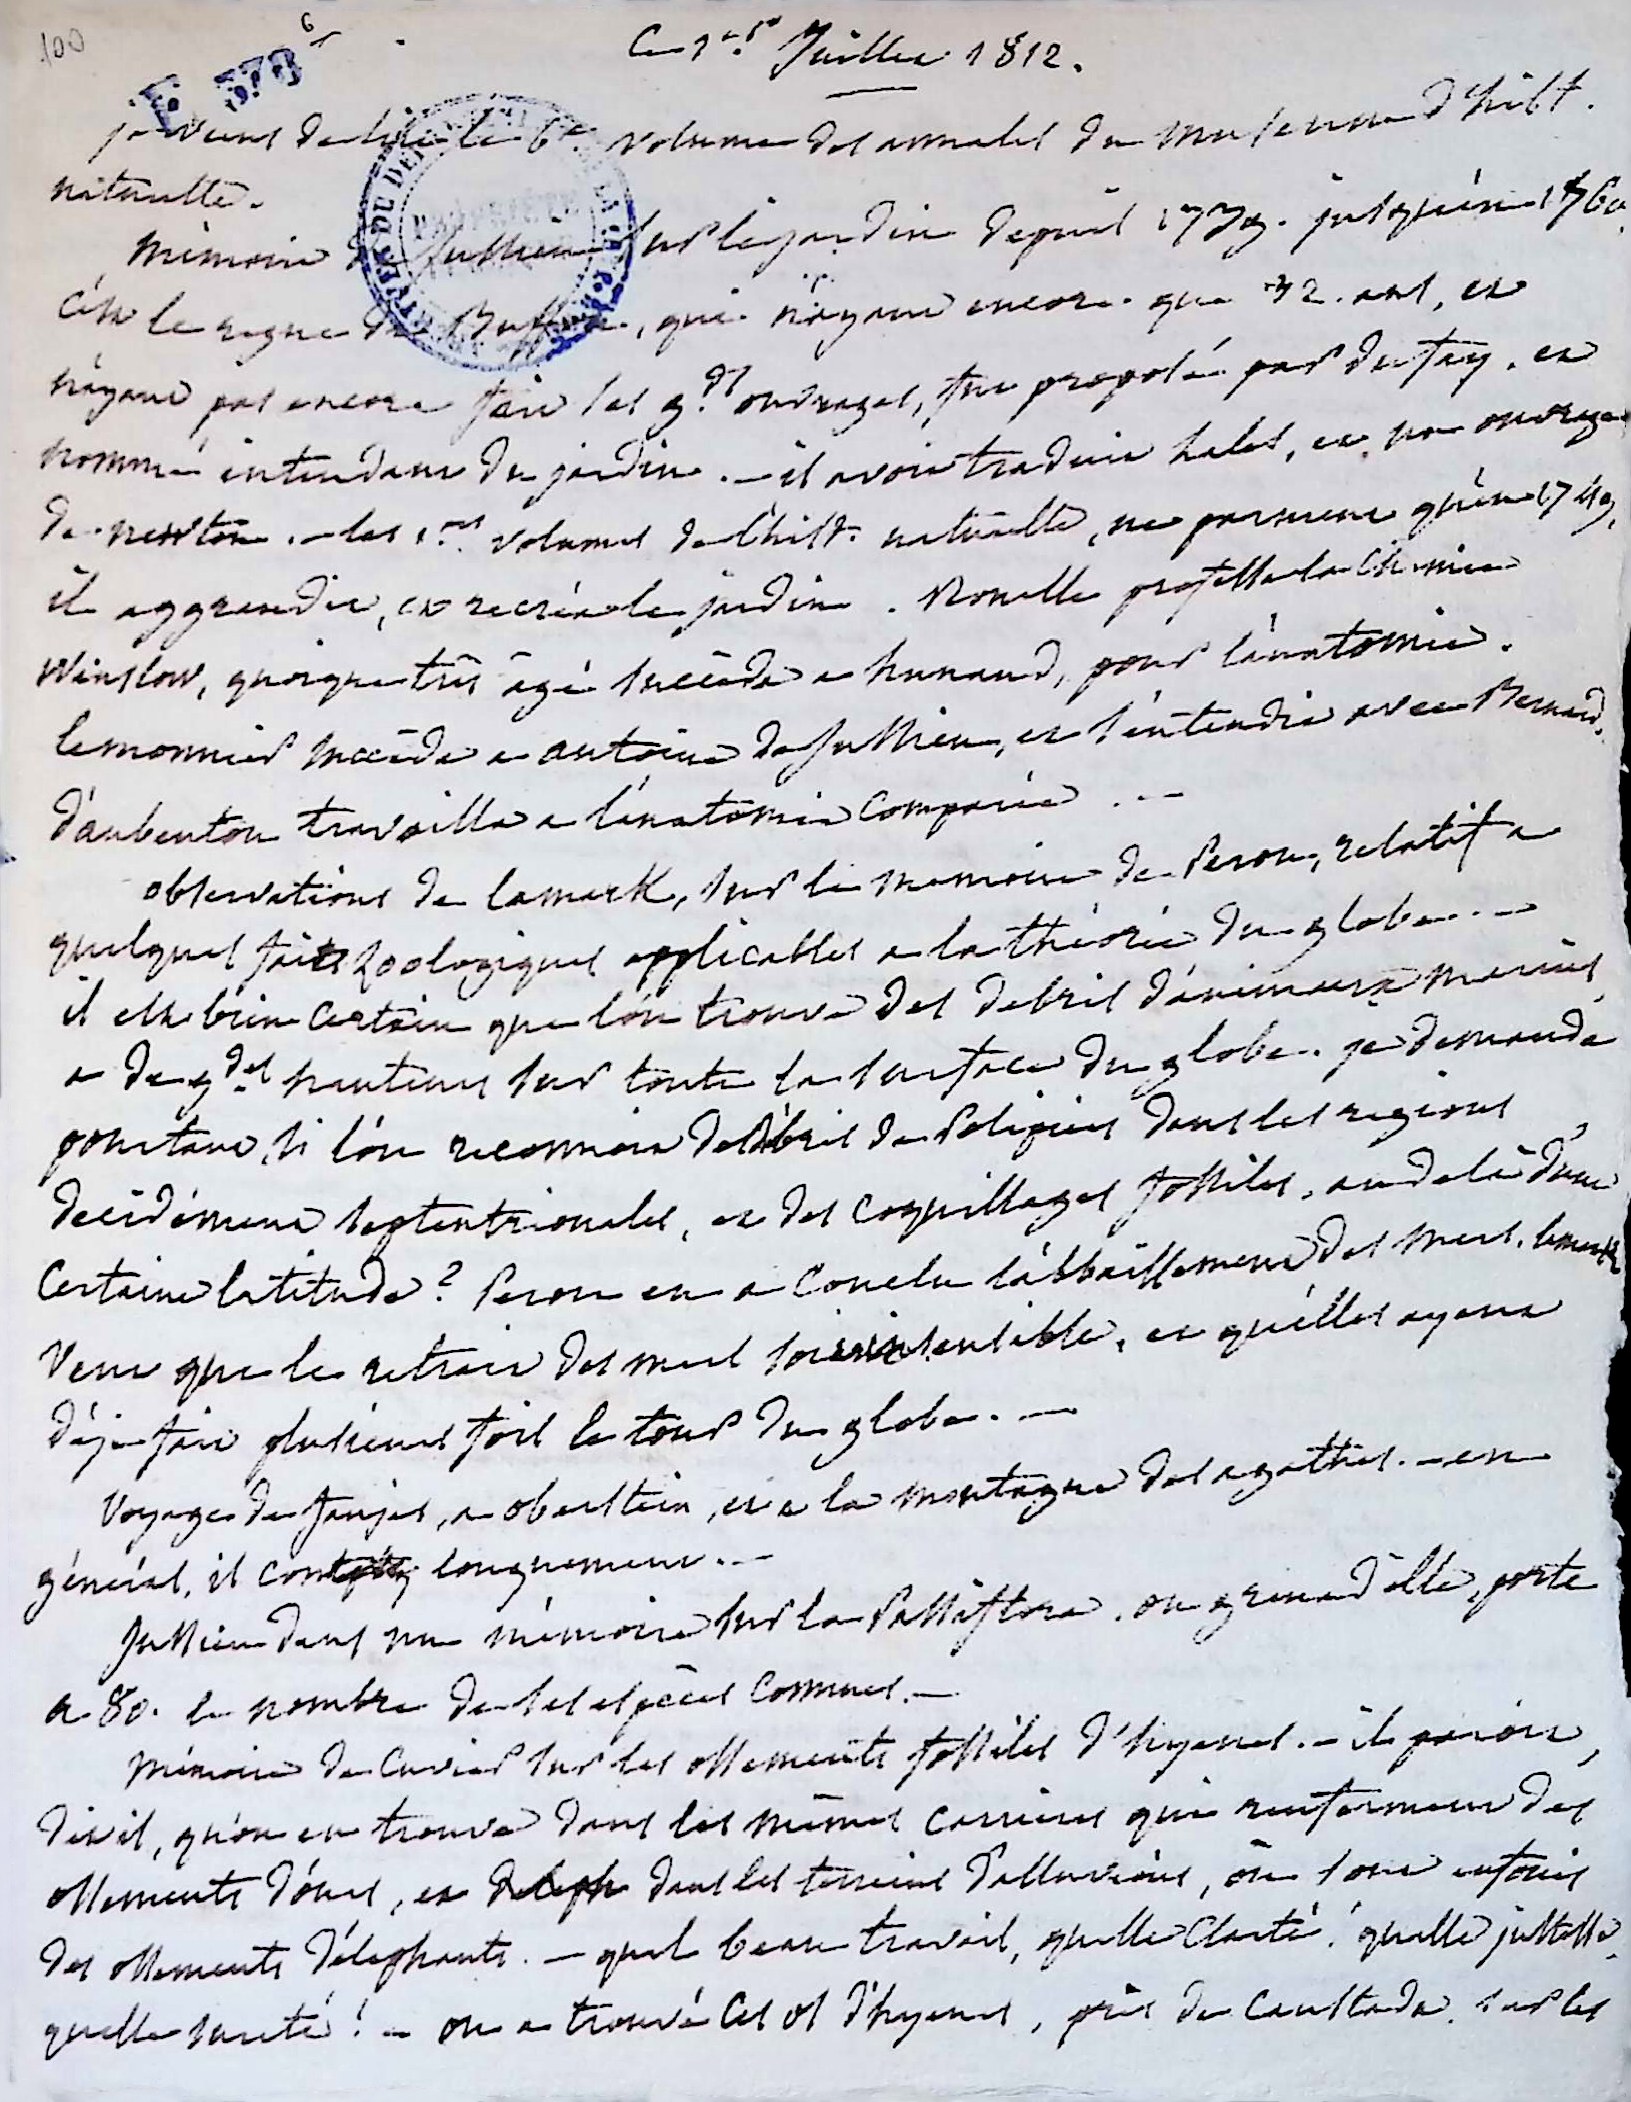 100
E 378
6
Ce 1er. Juillet 1812.
je viens de lire le 6e. volume des annales du museum d'hist.
naturelle.
mémoire de Jussieu sur le jardin depuis 1739. jusqu'en 1760.
c'est le regne de Buffon, qui n'ayant encore que 32. ans, et
n'ayant pas encore fait ses gds. ouvrages, fut proposé par dufay, et
nommé intendant du jardin. — il avoit traduit hales, et un ouvrage
de newton. — les 1ers. volumes de l'hist. naturelle, ne parurent qu'en 1749,
il aggrandit, et recréa le jardin. Rouelle professa la chimie
Winslow, quoique très âgé succéda a hunaud, pour l'anatomie.
lemonnier succéda a antoine de Jussieu, et s'entendit avec Bernard.
d'aubenton travailla a l'anatomie comparée. —
observations de lamark, sur le memoire de Peron, relatif a
quelques faits zoologiques applicables a la théorie du globe. —
il est bien certain que l'on trouve des debris d'animaux marins
a de gdes hauteurs sur toute la surface du globe. je demande
pourtant, si l'on reconnoit des débris de Polipiers dans les regions
decidément septentrionales, et des coquillages fossiles, au dela d'une
certaine latitude ? Peron en a conclu l'abbaissement des mers. lamark
veut que le retrait des mers soit insensible, et qu'elles ayent
déja fait plusieurs fois le tour du globe. —
Voyage de faujas, a oberstein, et a la montagne des agathes. — en
général, il conte longuement. —
Jussieu dans un mémoire sur la Passiflore, ou grenadille, porte
a 80. le nombre de ses espèces connues. —
mémoire de Cuvier sur les ossements fossiles d'hyenes. — il paroit,
dit-il, qu'on en trouve dans les mêmes carrieres qui renferment des
ossements d'ours, et dans les terreins d'alluvions, où sont enfouis
des ossements d'élephants. — quel beau travail, quelle clarté ! quelle justesse,
quelle sureté ! — on a trouvé ces os d'hyenes, près de Canstadt, sur les